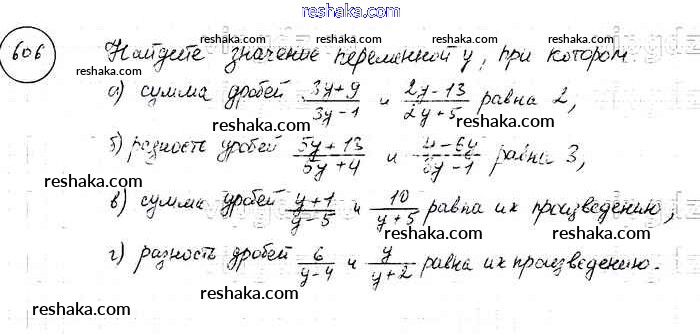 reshaka.com
606 Найдите значение переменной y, при котором:
reshaka.com reshaka.com reshaka.com
а) сумма дробей (3y+9)/(3y-1) и (2y-13)/(2y+5) равна 2,
reshaka.com reshaka.com
б) разность дробей (5y+13)/(5y+4) и (4-6y)/(3y-1) равна 3,
reshaka.com reshaka.com reshaka.com
в) сумма дробей (y+1)/(y-5) и 10/(y+5) равна их произведению,
reshaka.com reshaka.com
г) разность дробей 6/(y-4) и y/(y+2) равна их произведению.
reshaka.com reshaka.com reshaka.com
reshaka.com